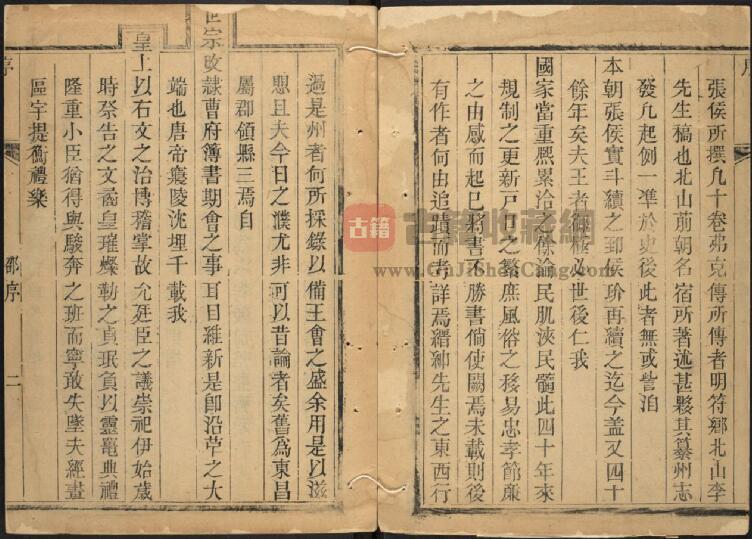 張侯所撰凡十卷弗克傳所傳者明符鄉北山李
先生稿也北山前朝名宿所著述甚夥其纂州志
發凡起例一準於史後此者無或訾洎
本朝張侯實斗續之郅侯玠再續之迄今蓋又四十
餘年矣夫王者御極必世後仁我
國家當重熙累洽之餘淪民肌浹民髓此四十年來
規制之更新戶口之繁庶風俗之移易忠孝節廉
之由感而起已將書不勝書倘使闕焉未載則後
有作者何由追蹟而考詳焉縉紳先生之東西行
過是州者何所採錄以備王會之盛余用是以滋
思且夫今日之濮尤非可以昔論者矣舊為東昌
屬郡領縣三焉自
世宗改隸曹府簿書期會之事耳目維新是卽沿革之大
端也唐帝遺陵沈埋千載我
皇上以右文之治博稽掌故允廷臣之議崇祀伊始歲
時祭告之文矞皇璀燦勒之貞珉負以靈鼉典禮
隆重小臣猶得與駿奔之班而寧敢失墜夫經畫
區宇提衡禮樂
序
郅序
二
古籍
古籍收藏網
www.GuJiShouCang.com